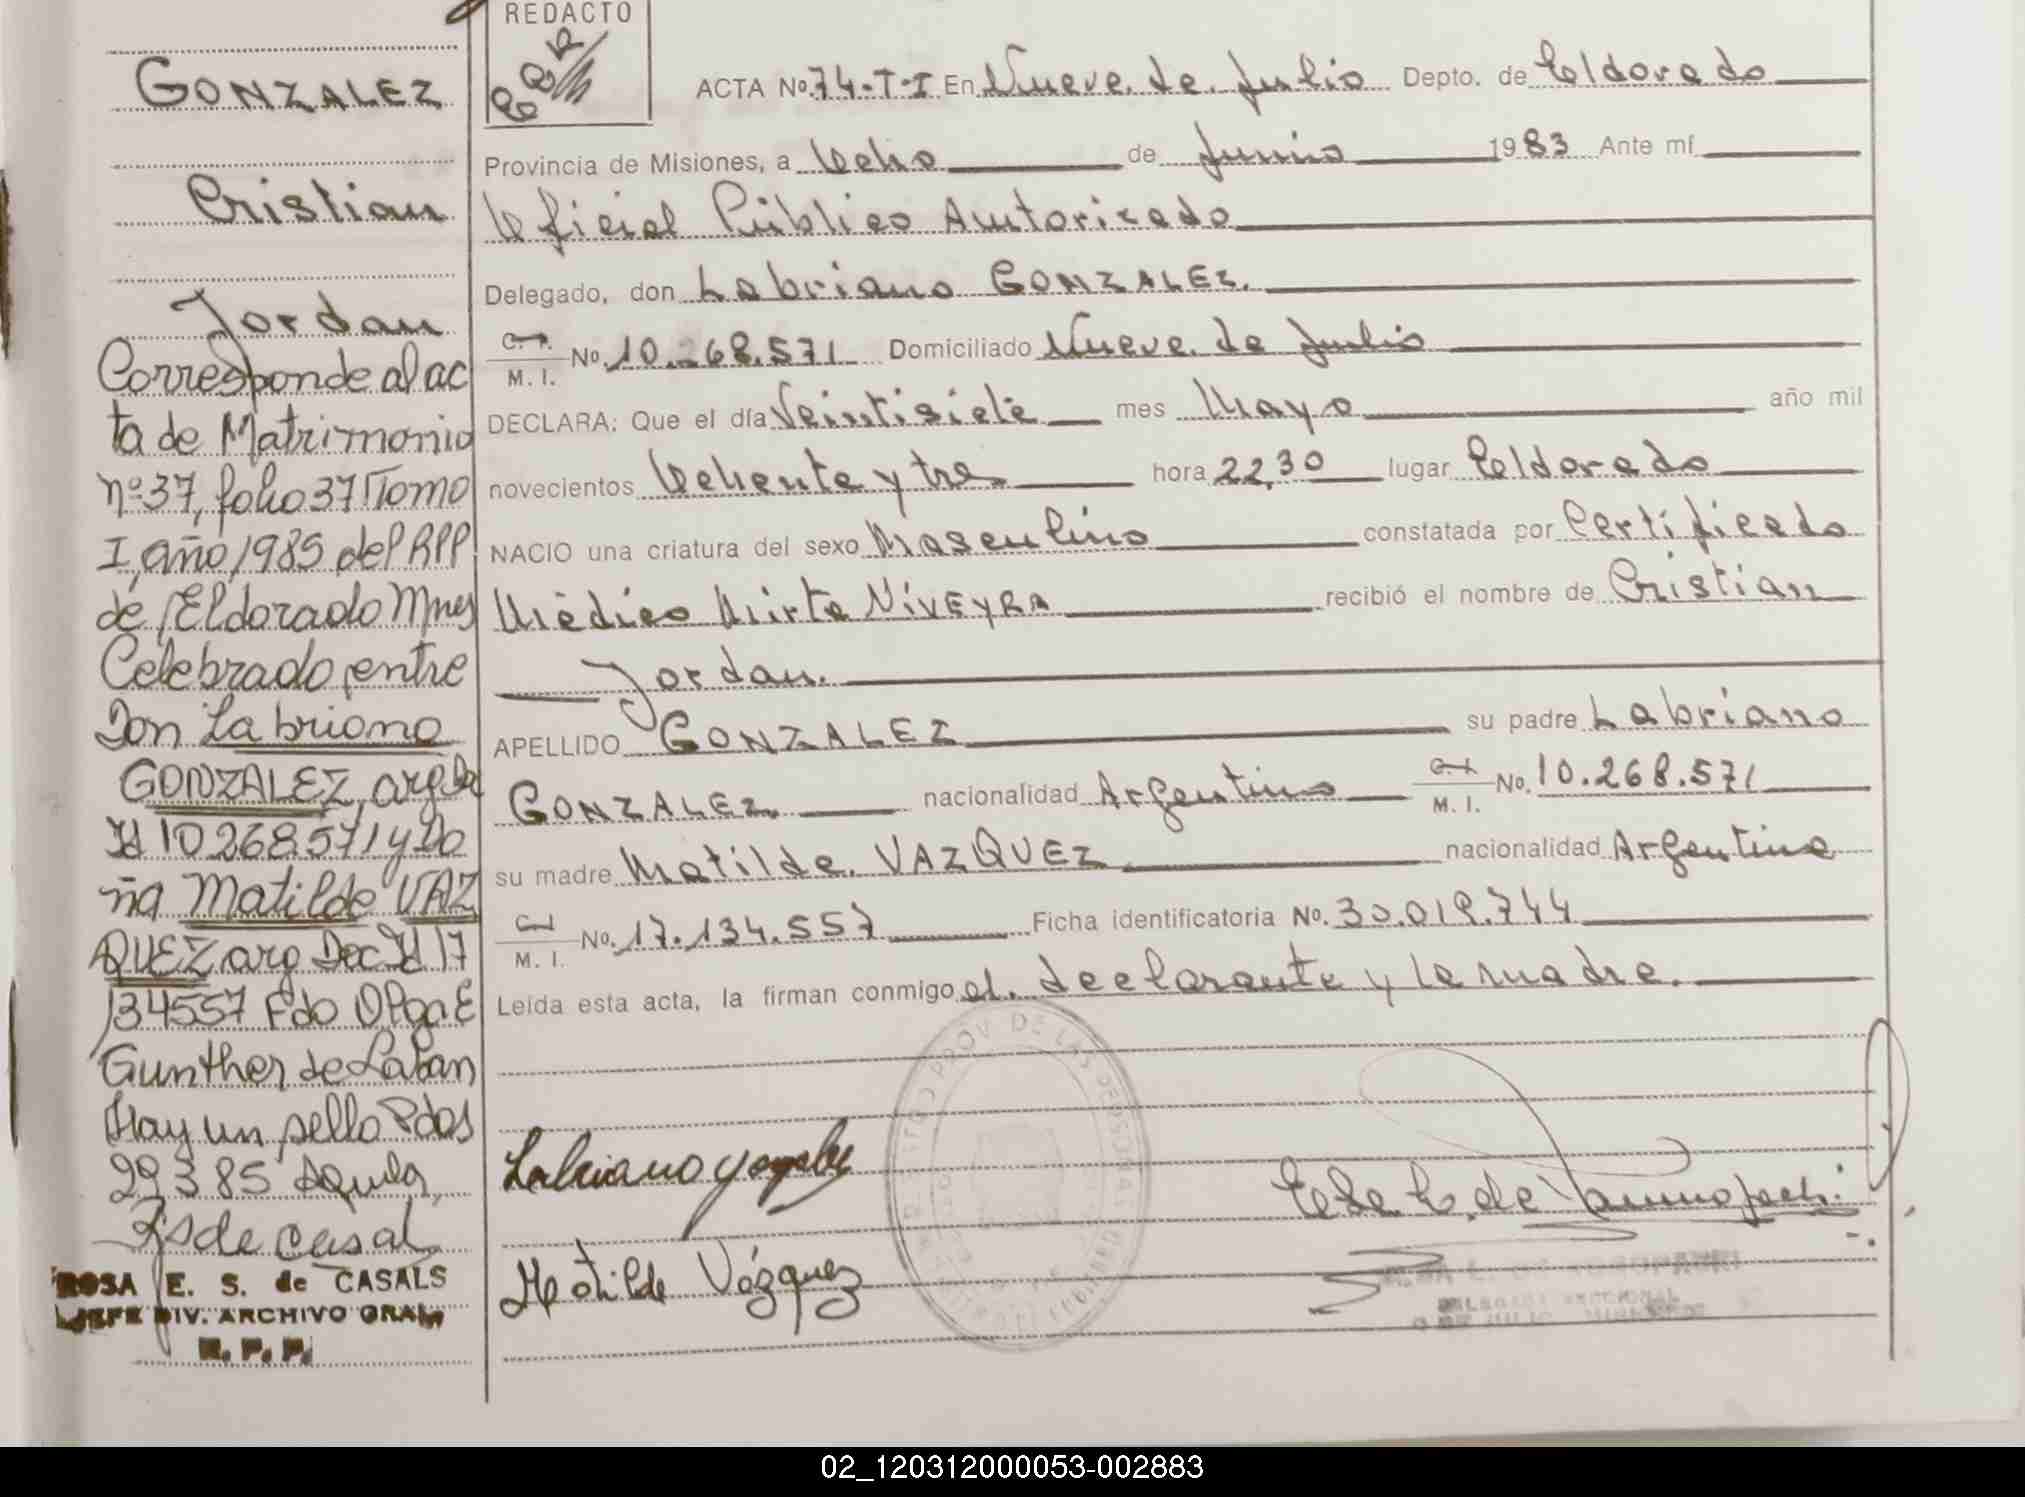 GONZALEZ
Cristian
Jordan
Corresponde al ac
ta de Matrimonio
nº 37, folio 37 Tomo
I, año 1985 del RPP
de Eldorado Mnes
Celebrado entre
Don Labriano
GONZALEZ, arg Do
Id 10268571 y Do
ña Matilde VAZ
QUEZ arg Doc Id 17
134557 Fdo Olga E
Gunther de Laban
Hay un sello Pdas
29 3 85
ROSA E. S. de CASALS
JEFE DIV. ARCHIVO GRAL
R. P. P.
REDACTO
ACTA No. 74-T-I En Nueve de Julio Depto. de Eldorado
Provincia de Misiones, a Ocho de Junio 1983 Ante mí
Oficial Público Autorizado
Delegado, don Labriano GONZALEZ.
C. I.
M. I. No. 10.268.571 Domiciliado Nueve de Julio
DECLARA: Que el día Veintisiete mes Mayo año mil
novecientos Ochenta y tres hora 22,30 lugar Eldorado
NACIO una criatura del sexo Masculino constatada por Certificado
Médico Mirta NIVEYRA recibió el nombre de Cristian
Jordan.
APELLIDO GONZALEZ su padre Labriano
GONZALEZ nacionalidad Argentino C. I. M. I. No. 10.268.571
su madre Matilde VAZQUEZ nacionalidad Argentina
C. I. M. I. No. 17.134.557 Ficha identificatoria No. 30.019.744
Leída esta acta, la firman conmigo el declarante y la madre.
Labriano Gonzalez
Matilde Vázquez
02_120312000053-002883